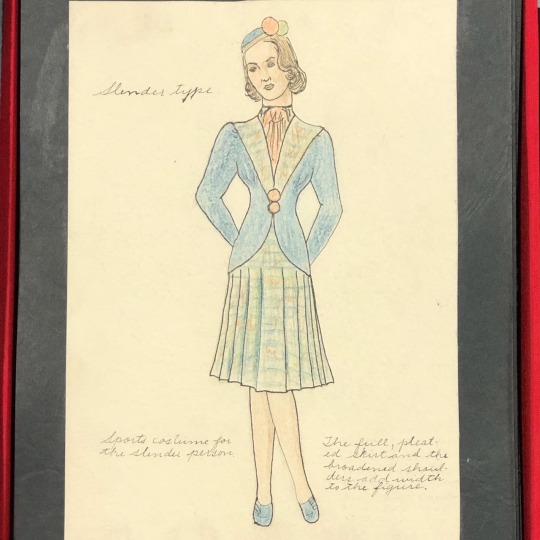 Slender type
Sports costume for
the slender person.
The full, pleat-
ed skirt and the
broadened shoul-
ders add width
to the figure.